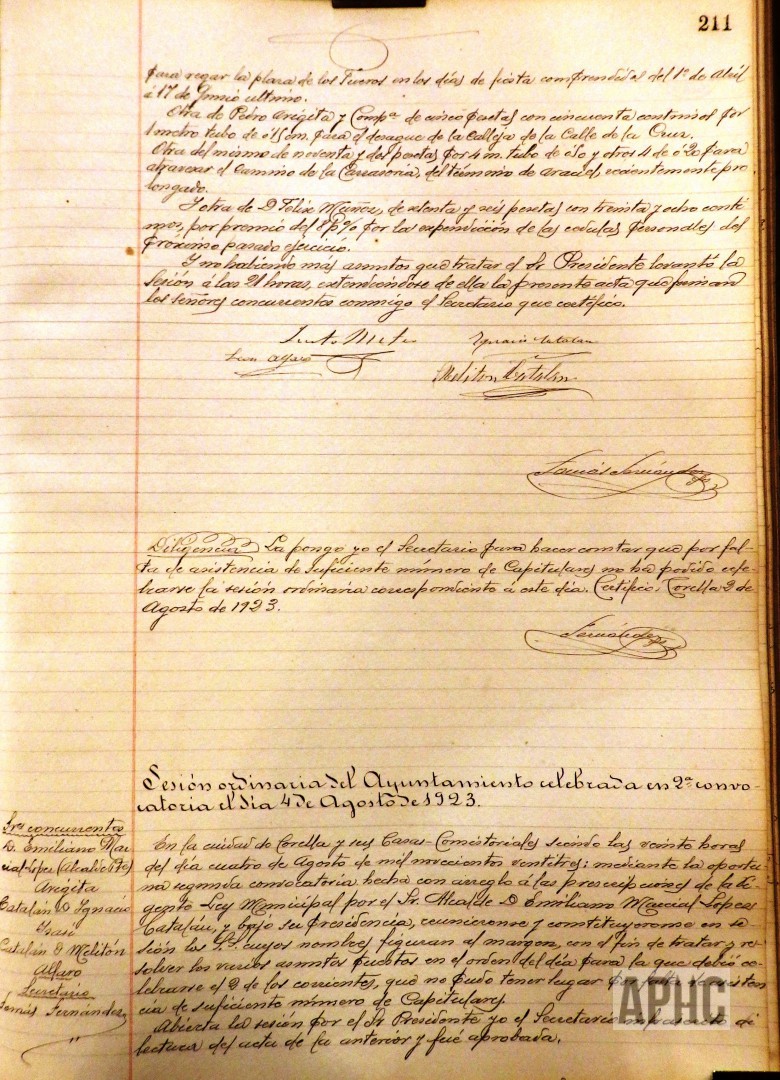 211
para regar la plaza de los Fueros en los días de fiesta comprendidos del 1º de Abril
á 17 de Junio ultimo.
Otra de Pedro Arigita y Compª de cinco pesetas con cincuenta centimos por
1 metro tubo de 0'15 cm. para el desague de la Calleja de la Calle de la Cruz.
Otra del mismo de noventa y dos pesetas por 4 m. tubo de 0'50 y otros 4 de 0'20 para
atravesar el Camino de la del termino de Araciel, recientemente pro
longado.
Y otra de D. Felix Muñoz, de setenta y seis pesetas con treinta y ocho centi
mos, por premio del por la expendición de las cedulas personales del
próximo pasado ejercicio.
Y no habiendo más asuntos que tratar el Sr. Presidente levantó la
Sesión á las 21 horas, extendiéndose de ella la presente acta que firman
los señores concurrentes conmigo el Secretario que certifico.
Ignacio Catalan
Juan Alfaro
Meliton Catalan
Tomás Fernández
Diligencia La pongo yo el Secretario para hacer constar que por fal-
ta de asistencia de suficiente número de Capitulares no ha podido cele-
brarse la sesión ordinaria correspondiente á este día. Certifico. Corella 2 de
Agosto de 1923.
Fernández
Sesión ordinaria del Ayuntamiento celebrada en 2ª convo-
catoria el día 4 de Agosto de 1923.
Srs concurrentes
D. Emiliano Mar
cial-López (Alcalde Pte)
Arigita
Catalán D. Ignacio
Isasi
Catalán D. Melitón
Alfaro
Secretario
Tomás Fernández
En la ciudad de Corella y sus Casas-Consistoriales siendo las veinte horas
del día cuatro de Agosto de mil novecientos veintitres: mediante la oportu
na segunda convocatoria hecha con arreglo á las prescripciones de la vi
gente Ley Municipal por el Sr. Alcalde D. Emiliano Marcial López
Catalán, y bajo su Presidencia, reunieronse y constituyeronse en se
sión los Srs. cuyos nombres figuran al margen, con el fin de tratar y re
solver los varios asuntos puestos en el orden del día para la que debió ce
lebrarse el 2 de los corrientes, que no pudo tener lugar por falta de asisten
cia de suficiente número de Capitulares.
Abierta la sesión por el Sr. Presidente yo el Secretario infrascrito di
lectura del acta de la anterior y fué aprobada.
APHC